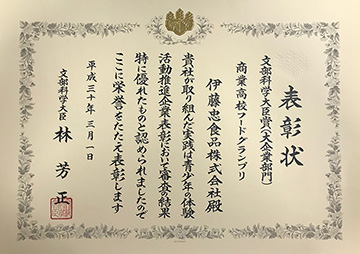 表彰状
文部科学大臣賞（大企業部門）
商業高校フードグランプリ
伊藤忠食品株式会社殿
貴社が取り組んだ実践は青少年の体験
活動推進企業表彰において審査の結果
特に優れたものと認められましたので
ここに栄誉をたたえ表彰します
平成三十年三月一日
文部科学大臣
林芳正